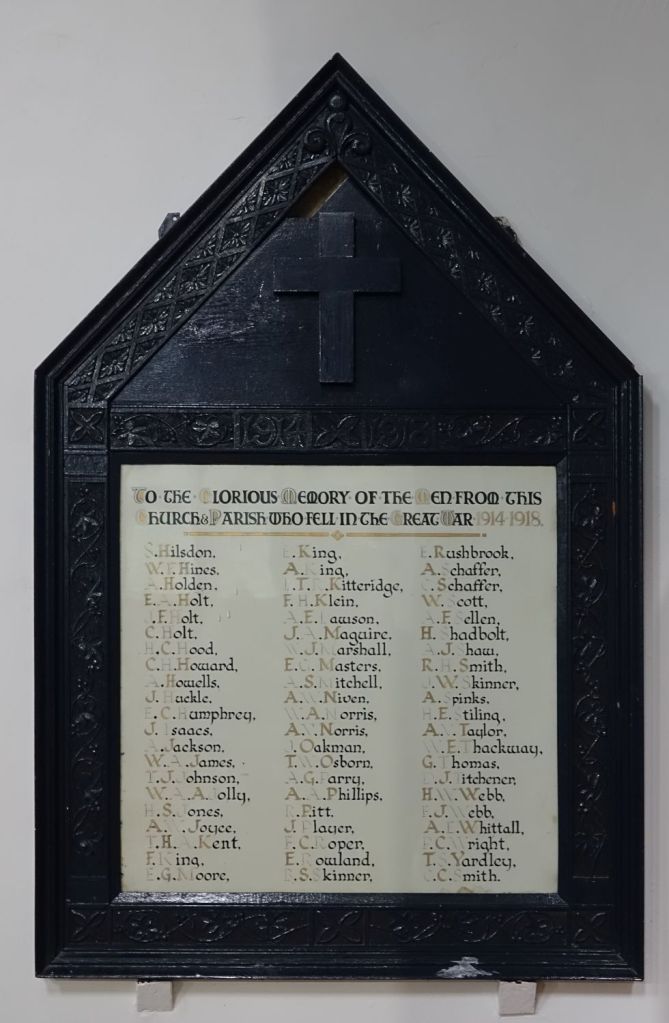 1914 1918
TO THE GLORIOUS MEMORY OF THE MEN FROM THIS
CHURCH & PARISH WHO FELL IN THE GREAT WAR 1914-1918.
S. Hilsdon,
W. F. Hines,
A. Holden,
E. A. Holt,
J. F. Holt,
C. Holt,
H. C. Hood,
C. H. Howard,
A. Howells,
J. Huckle,
E. C. Humphrey,
J. Isaacs,
A. Jackson,
W. A. James,
T. J. Johnson,
W. A. A. Jolly,
H. S. Jones,
A. W. Joyce,
T. H. A. Kent,
F. King,
E. G. Moore,
E. King,
A. King,
L. T. R. Kitteridge,
F. H. Klein,
A. E. Lawson,
J. A. Maguire,
W. J. Marshall,
E. C. Masters,
A. S. Mitchell,
A. W. Niven,
W. A. Norris,
A. W. Norris,
J. Oakman,
T. W. Osborn,
A. G. Parry,
A. A. Phillips,
R. Pitt,
J. Player,
F. C. Roper,
E. Rowland,
B. S. Skinner,
E. Rushbrook,
A. Schaffer,
C. Schaffer,
W. Scott,
A. F. Sellen,
H. Shadbolt,
A. J. Shaw,
R. H. Smith,
J. W. Skinner,
A. Spinks,
H. E. Stiling,
A. W. Taylor,
W. E. Thackway,
G. Thomas,
D. J. Titchener,
H. W. Webb,
F. J. Webb,
A. E. Whittall,
F. C. Wright,
T. S. Yardley,
C. C. Smith.